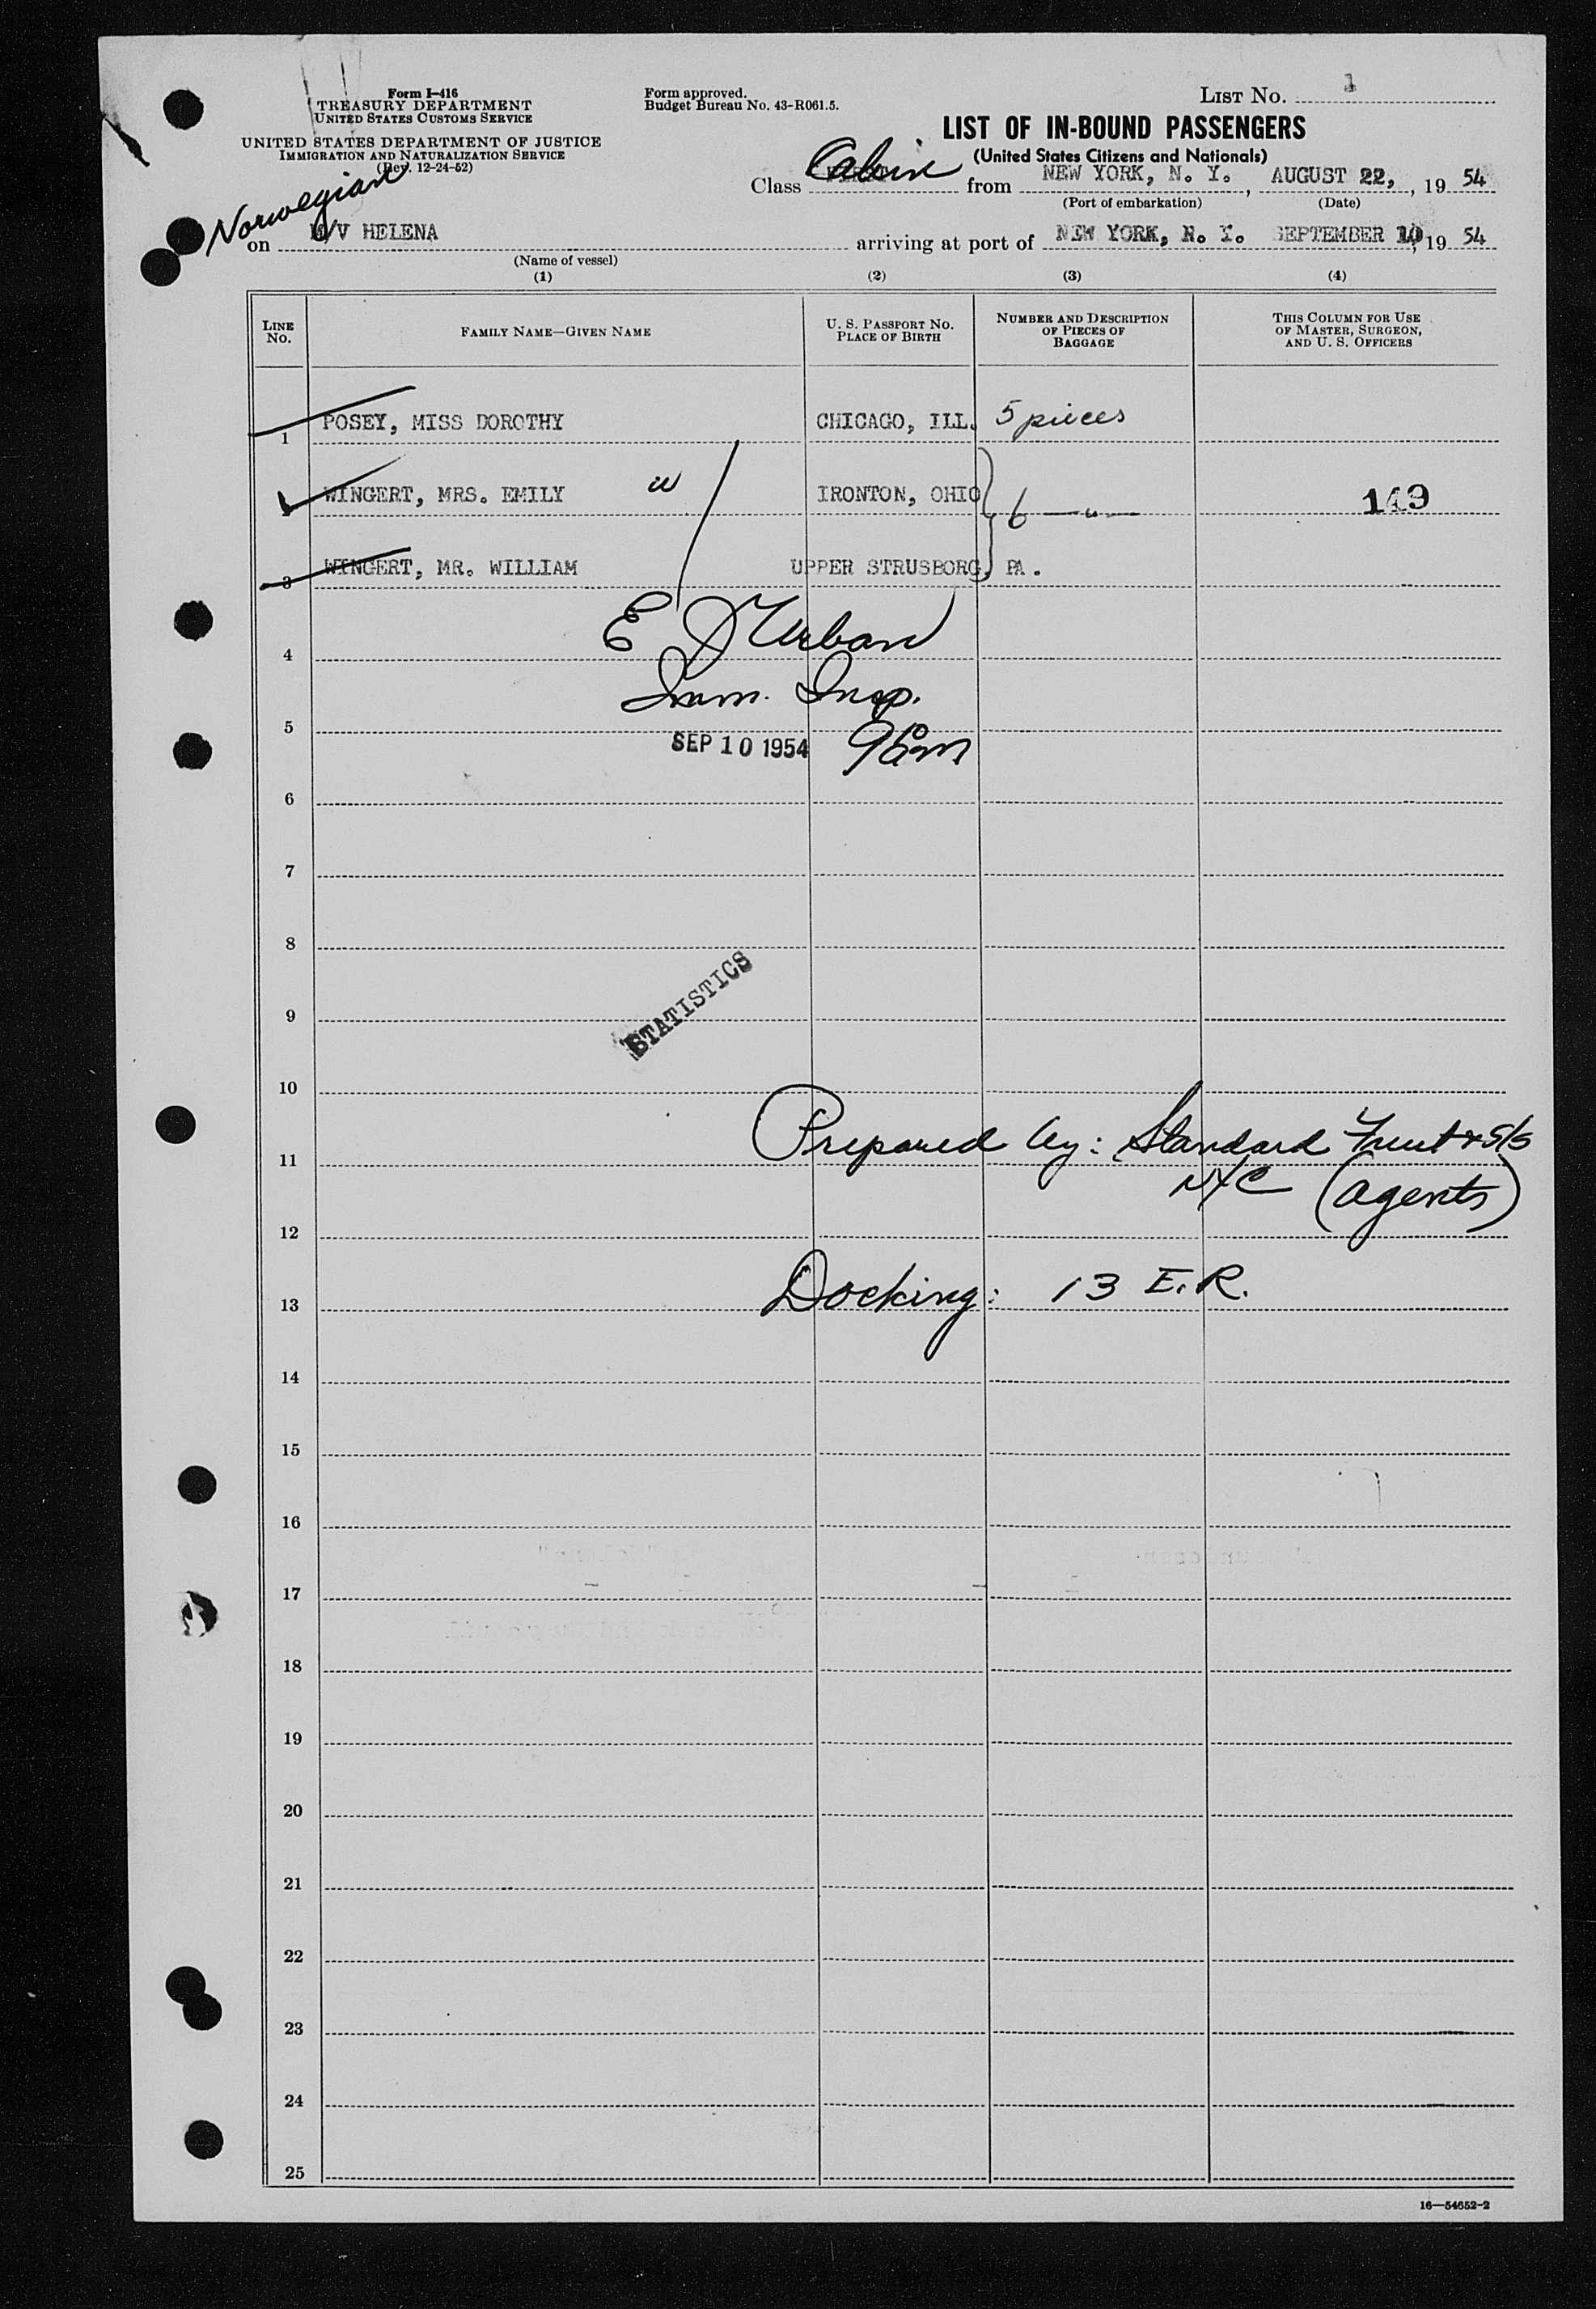 Form I-416
TREASURY DEPARTMENT
UNITED STATES CUSTOMS SERVICE
UNITED STATES DEPARTMENT OF JUSTICE
IMMIGRATION AND NATURALIZATION SERVICE
(Rev. 12-24-52)
Form approved.
Budget Bureau No. 43-R061.5.
LIST NO. 1
LIST OF IN-BOUND PASSENGERS
(United States Citizens and Nationals)
Class Cabin from NEW YORK, N. Y., AUGUST 22, 1954
(Port of embarkation) (Date)
Norwegian
on M/V HELENA arriving at port of NEW YORK, N. Y. SEPTEMBER 10, 1954
(Name of vessel)
(1) (2) (3) (4)
LINE NO. FAMILY NAME—GIVEN NAME U. S. PASSPORT NO. PLACE OF BIRTH NUMBER AND DESCRIPTION OF PIECES OF BAGGAGE THIS COLUMN FOR USE OF MASTER, SURGEON, AND U. S. OFFICERS
1 POSEY, MISS DOROTHY CHICAGO, ILL. 5 pieces
WINGERT, MRS. EMILY w IRONTON, OHIO 6 —"— 149
3 WINGERT, MR. WILLIAM UPPER STRUSBORG, PA.
E J Urban
4
Imm. Insp.
5
SEP 10 1954 9am
6
7
8
STATISTICS
9
10
Prepared by: Standard Fruit & S/S
11
NYC (agents)
12
Docking: 13 E.R.
13
14
15
16
17
18
19
20
21
22
23
24
25
16—54652-2